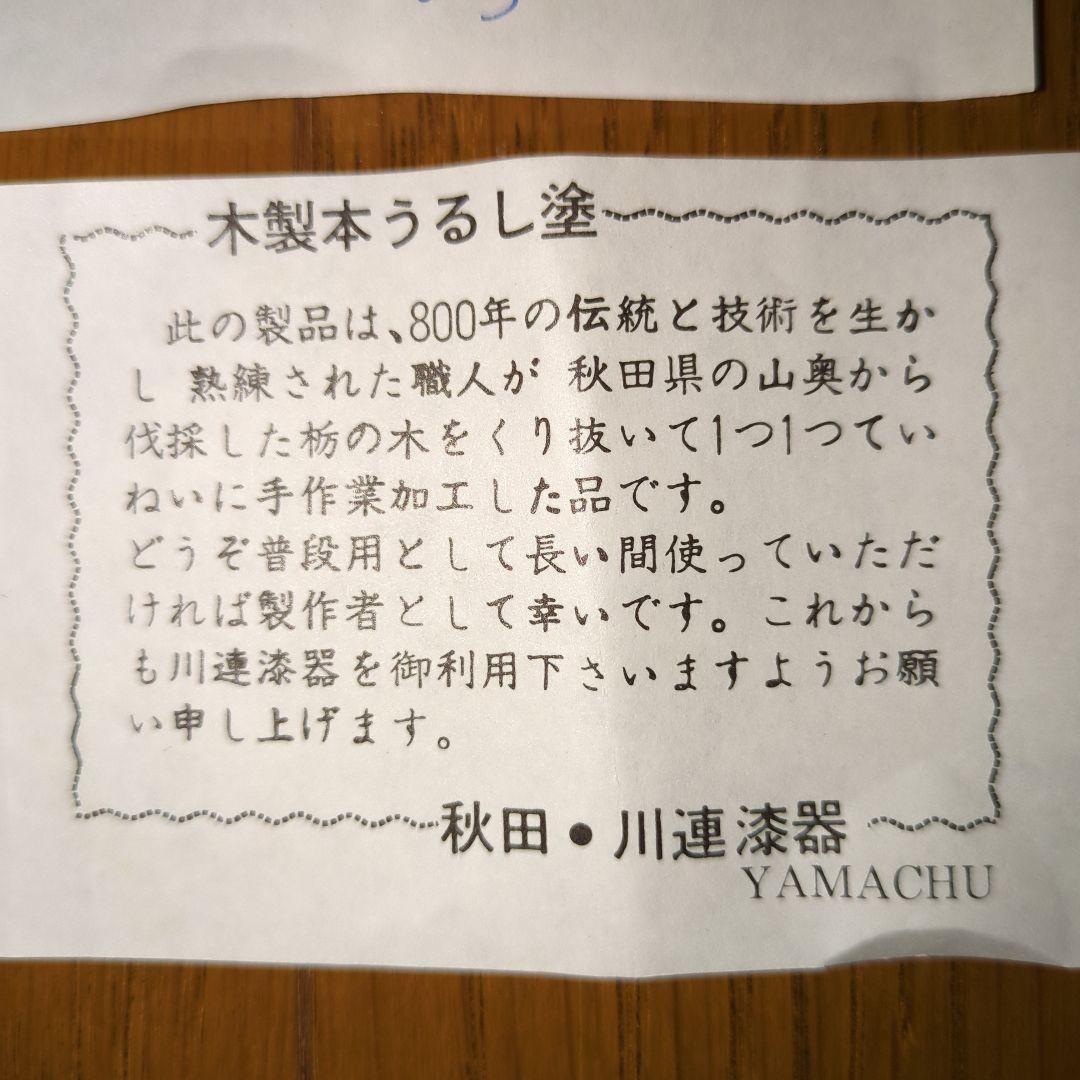 木製本うるし塗
此の製品は、800年の伝統と技術を生か
し 熟練された職人が 秋田県の山奥から
伐採した栃の木をくり抜いて1つ1つてい
ねいに手作業加工した品です。
どうぞ普段用として長い間使っていただ
ければ製作者として幸いです。これから
も川連漆器を御利用下さいますようお願
い申し上げます。
秋田・川連漆器
YAMACHU